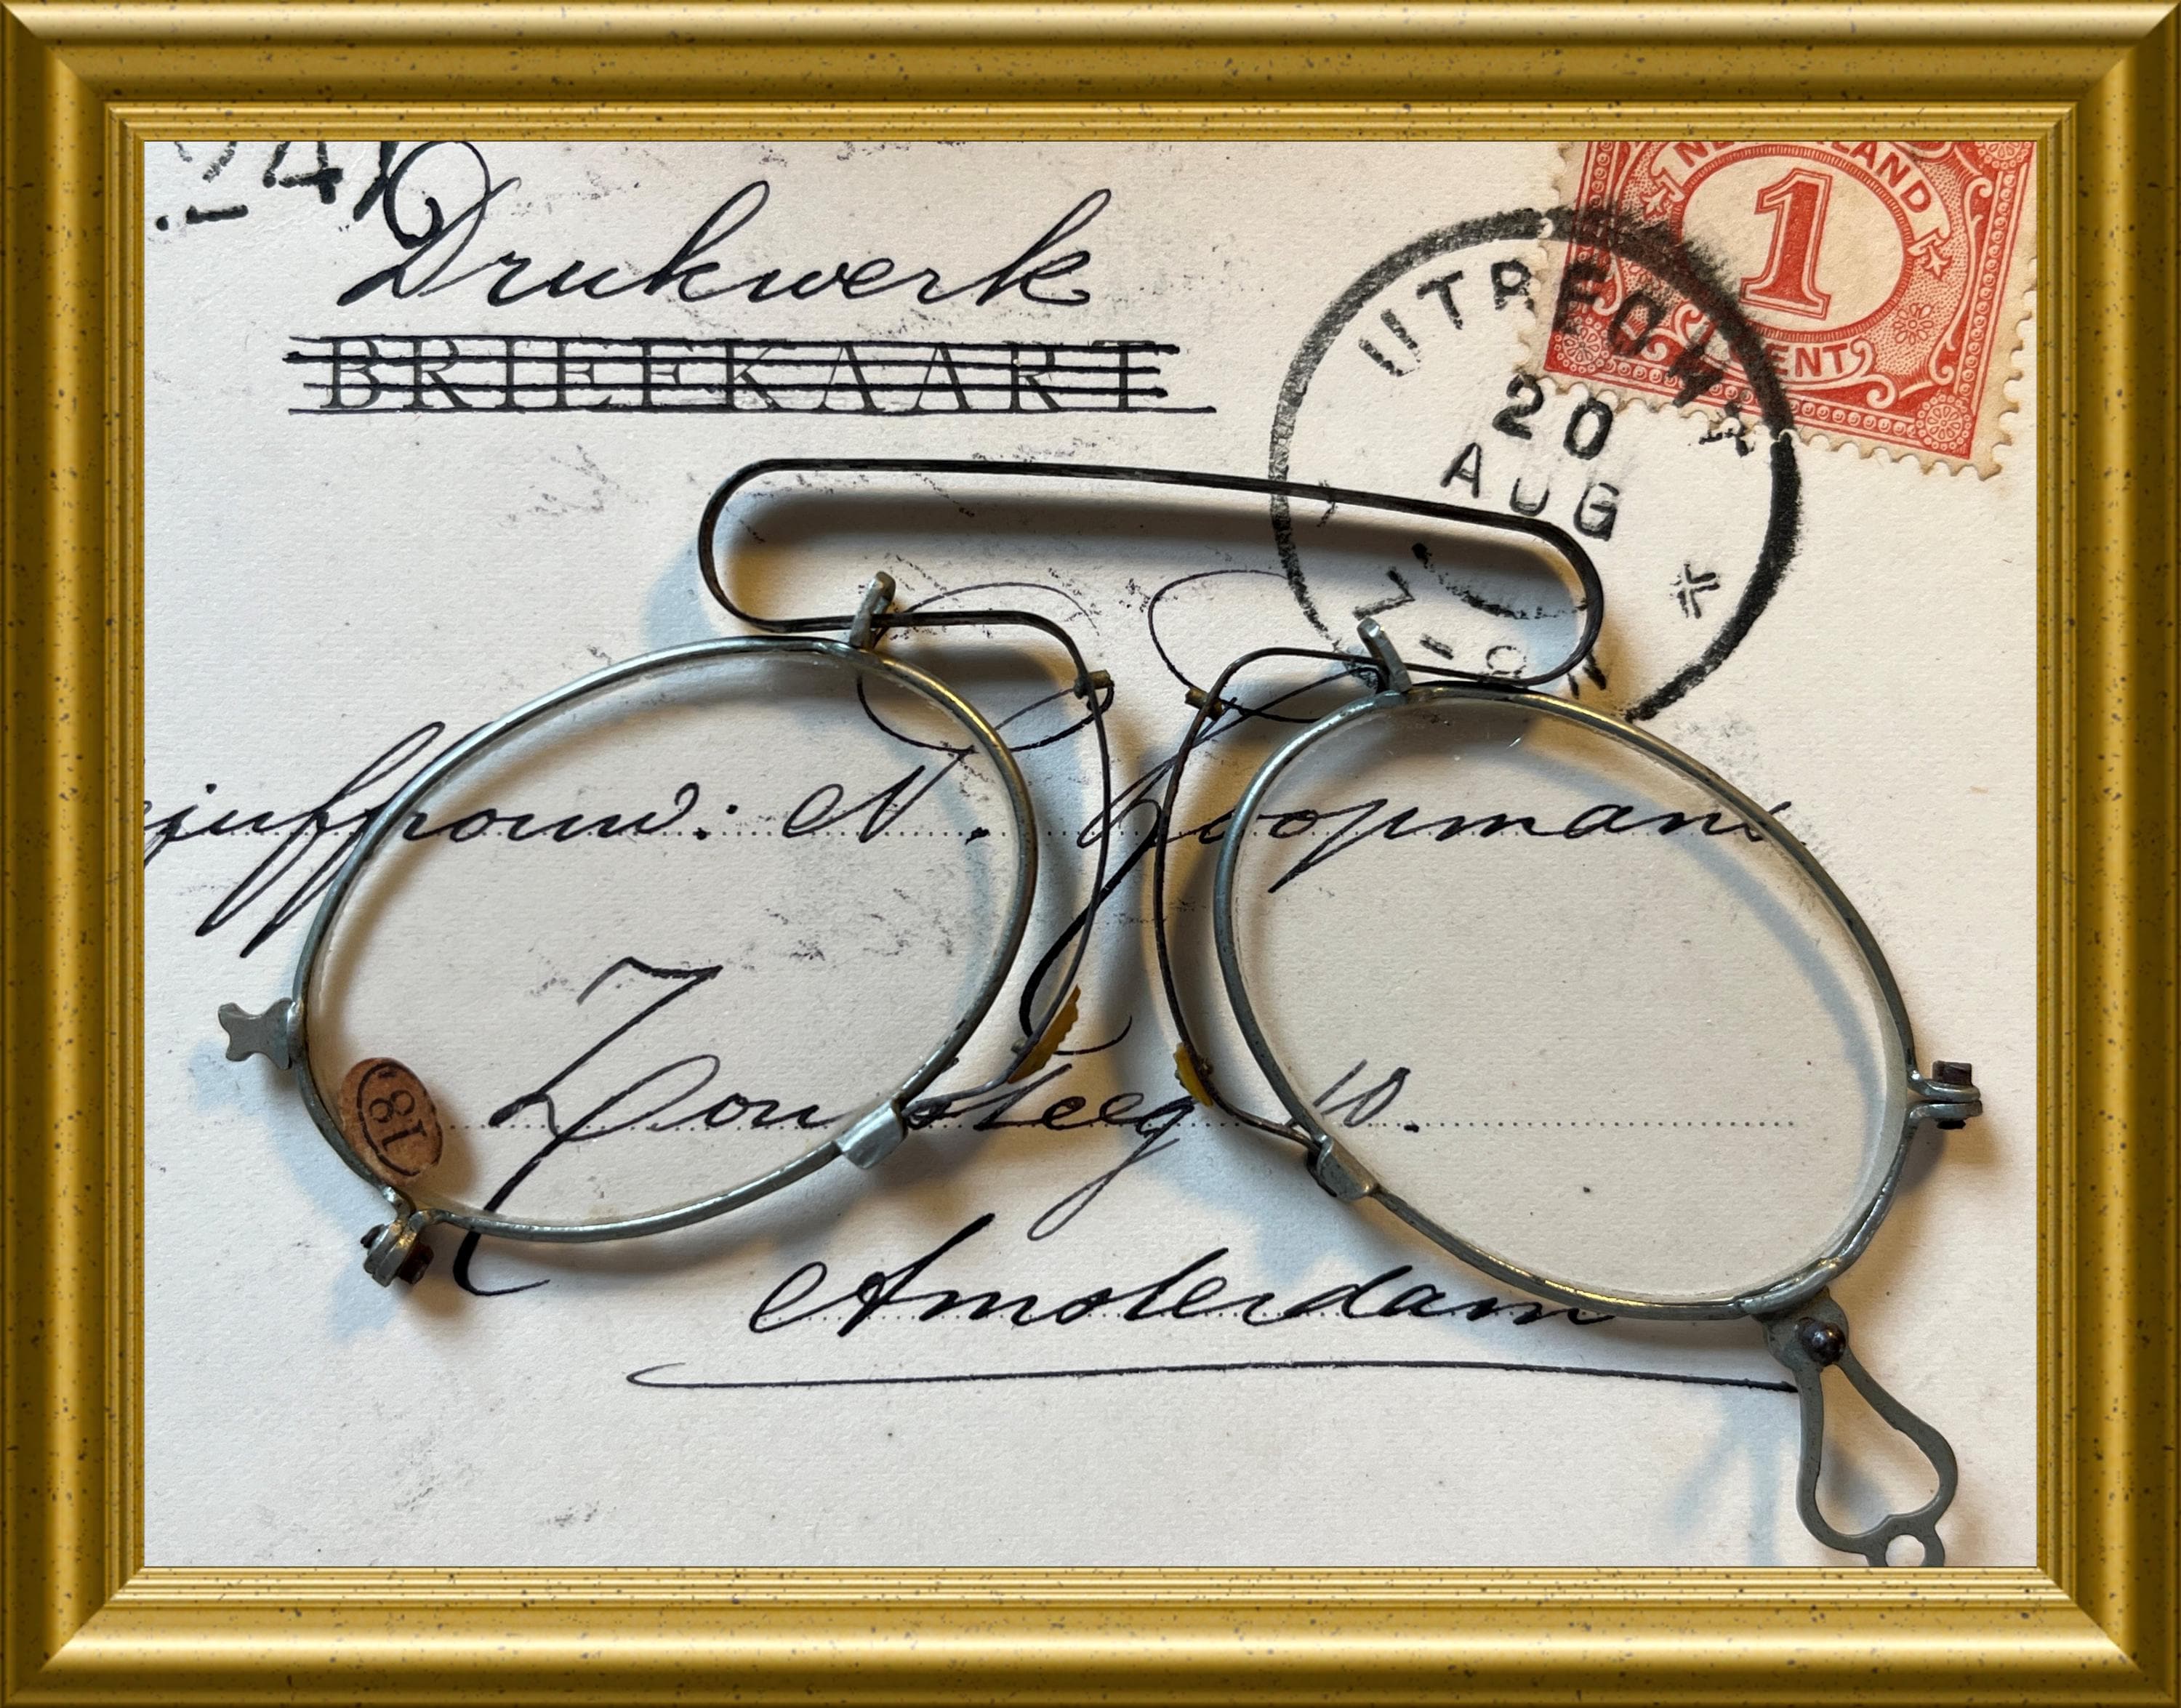 Drukwerk
BRIEFKAART
NEDERLAND
1
CENT
UTRECHT
20
AUG
juffrouw: N. Koopmans
18
Zoutsteeg 10.
Amsterdam